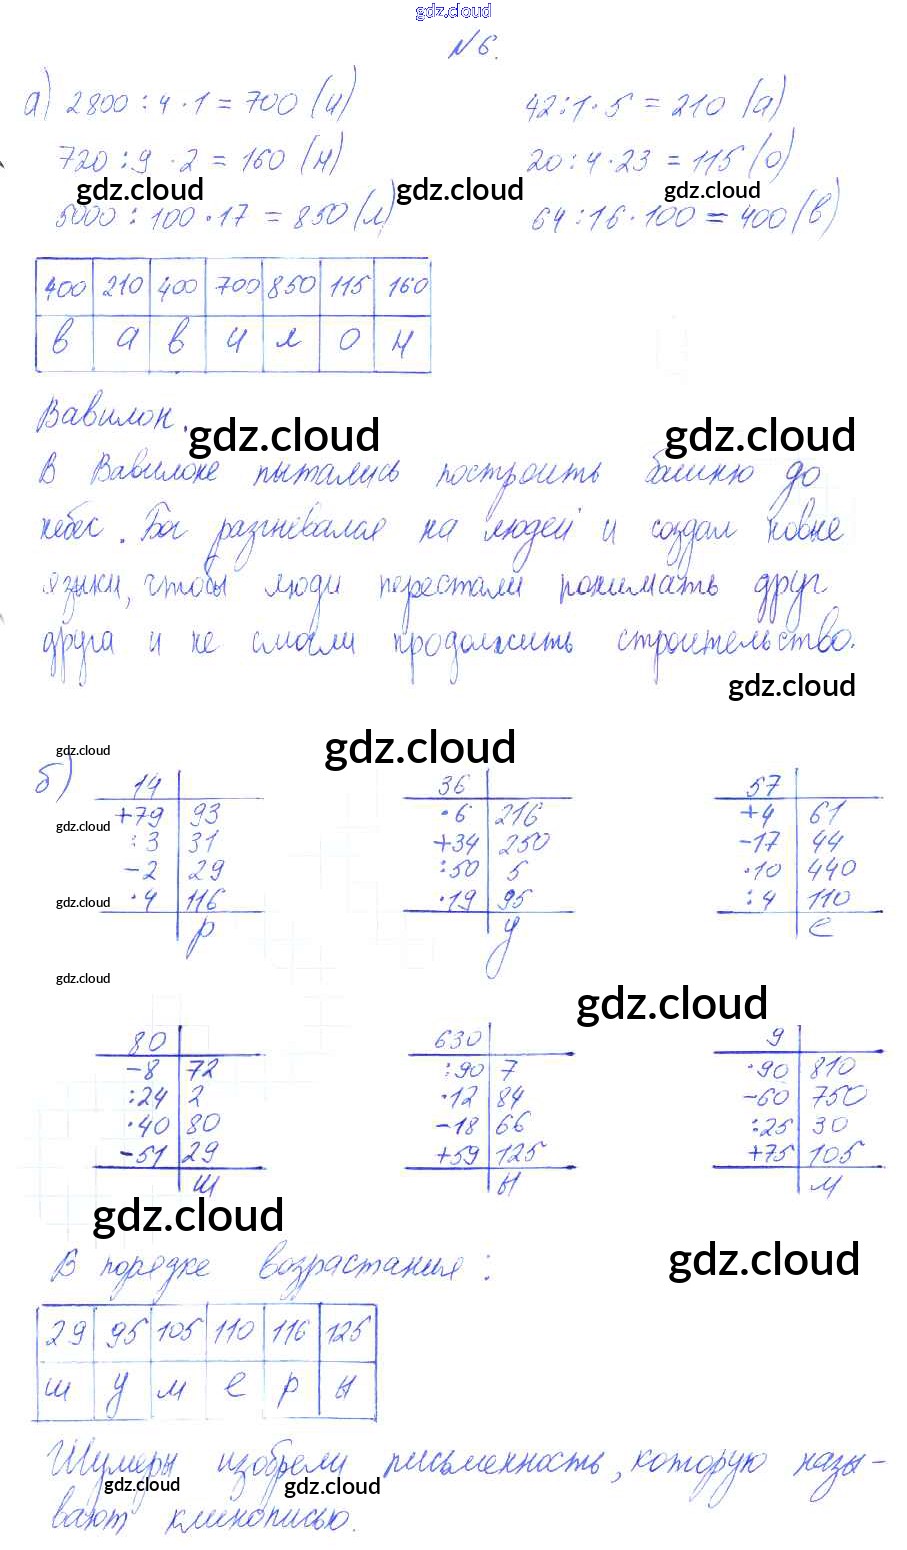 gdz.cloud
№6.
а) 2800 : 4 · 1 = 700 (и) 42 : 1 · 5 = 210 (а)
720 : 9 · 2 = 160 (н) 20 : 4 · 23 = 115 (о)
gdz.cloud gdz.cloud gdz.cloud
5000 : 100 · 17 = 850 (л) 64 : 16 · 100 = 400 (в)
400 210 400 700 850 115 160
в а в и л о н
Вавилон.
gdz.cloud gdz.cloud
В Вавилоне пытались построить башню до
небес. Бог разгневался на людей и создал новые
языки, чтобы люди перестали понимать друг
друга и не смогли продолжить строительство.
gdz.cloud
gdz.cloud gdz.cloud
б) 14 36 57
+79 93 ·6 216 +4 61
gdz.cloud
:3 31 +34 250 -17 44
-2 29 :50 5 ·10 440
·4 116 ·19 95 :4 110
gdz.cloud
р у е
gdz.cloud
gdz.cloud
80 630 9
-8 72 :90 7 ·90 810
:24 2 ·12 84 -60 750
·40 80 -18 66 :25 30
-51 29 +59 125 +75 105
ш ы м
gdz.cloud
gdz.cloud
В порядке возрастания:
29 95 105 110 116 125
ш у м е р ы
Шумеры изобрели письменность, которую назы-
gdz.cloud gdz.cloud
вают клинописью.